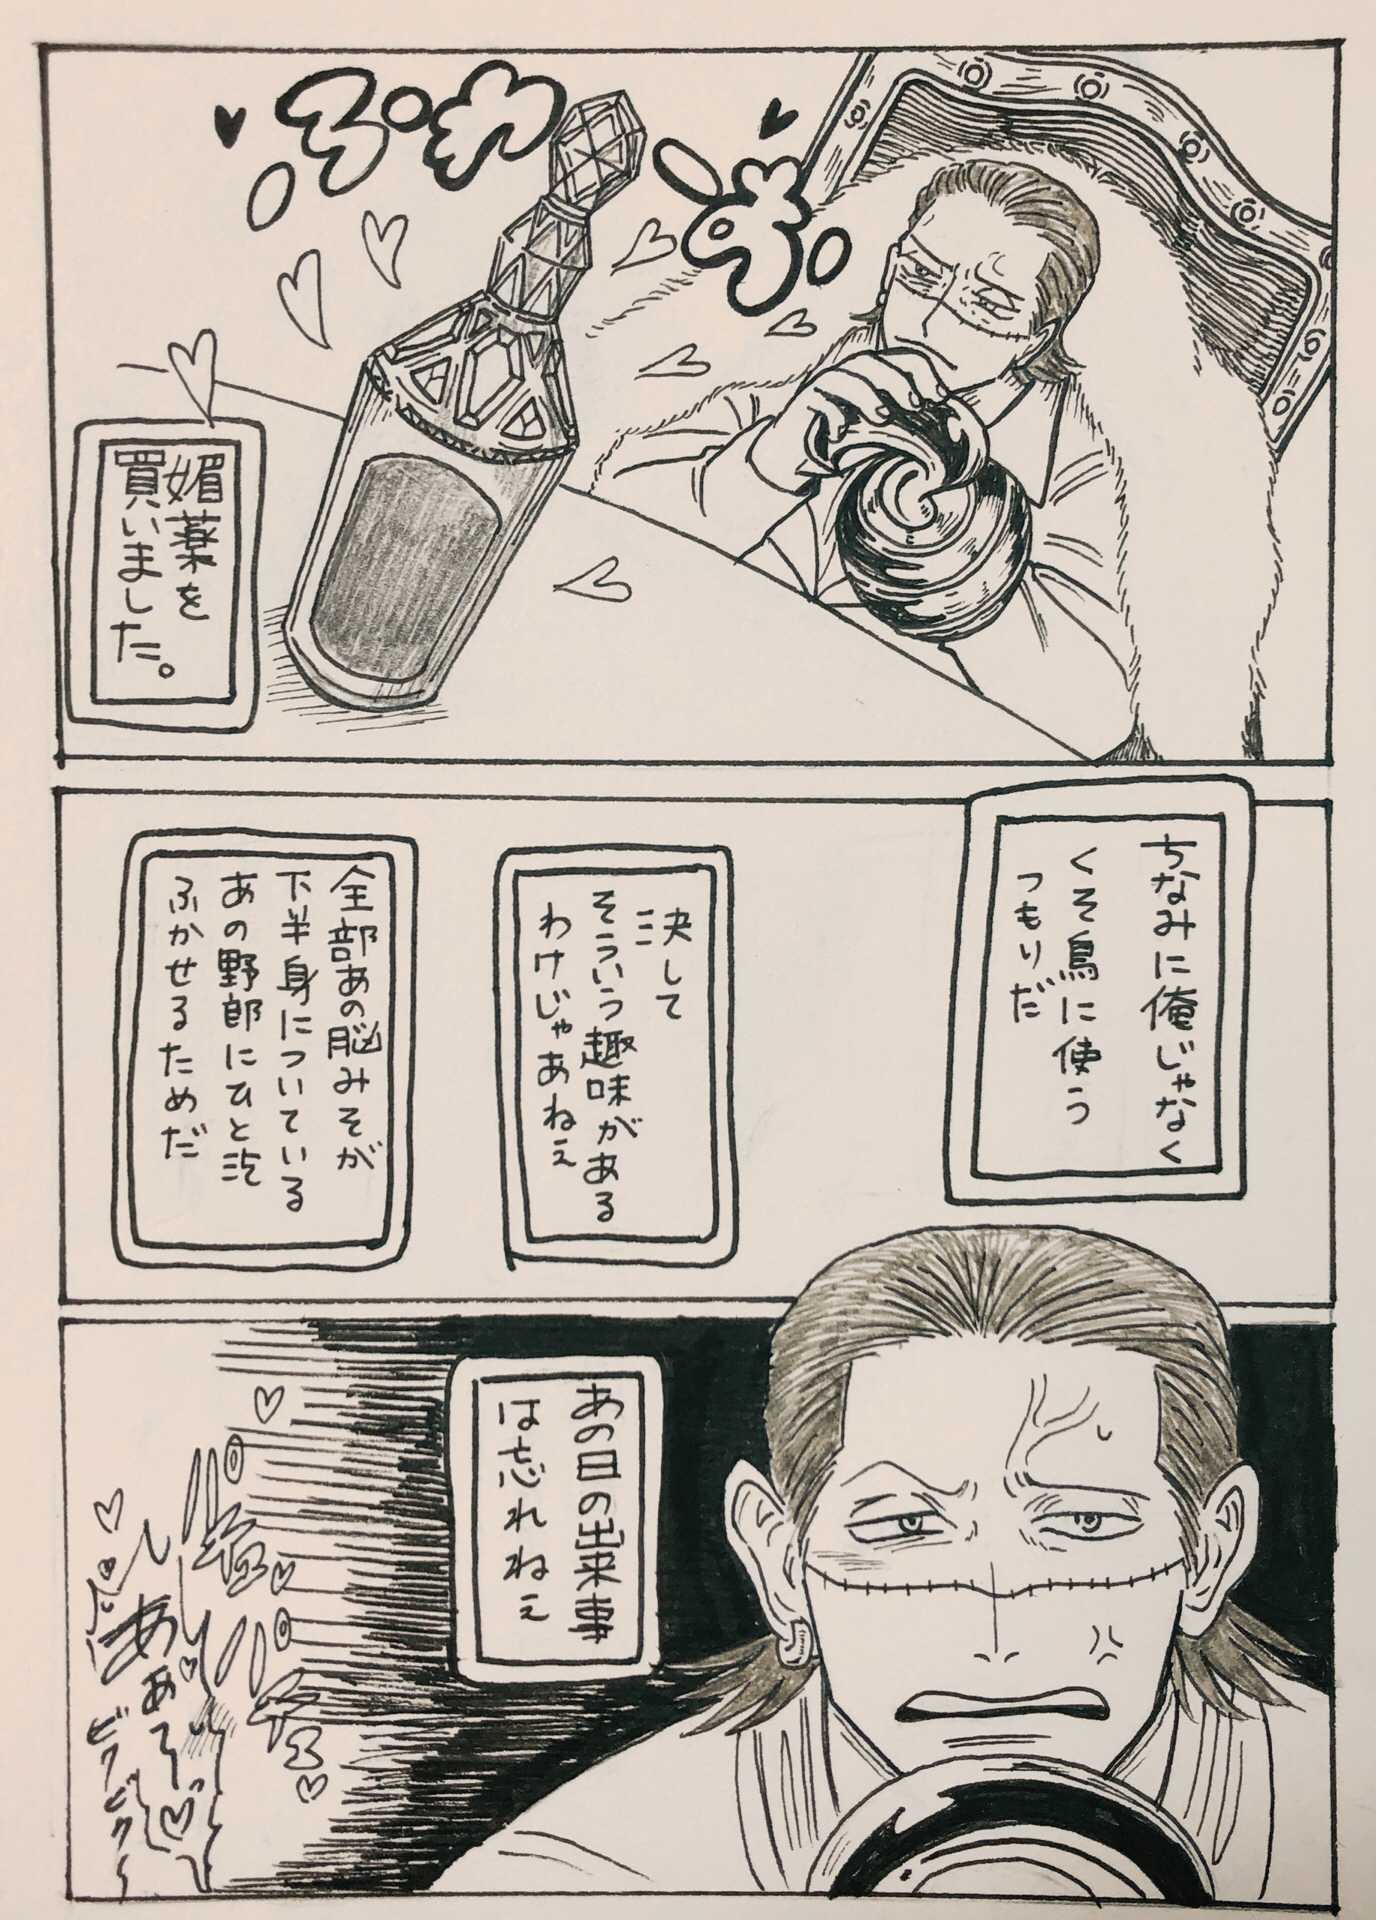 ぷわ
ぷ
媚薬を
買いました。
ちなみに俺じゃなく
くそ鳥に使う
つもりだ
決して
そういう趣味がある
わけじゃあねえ
全部あの脳みそが
下半身についている
あの野郎にひと泡
ふかせるためだ
あの日の出来事
は忘れねえ
パン
パン
ビクビク